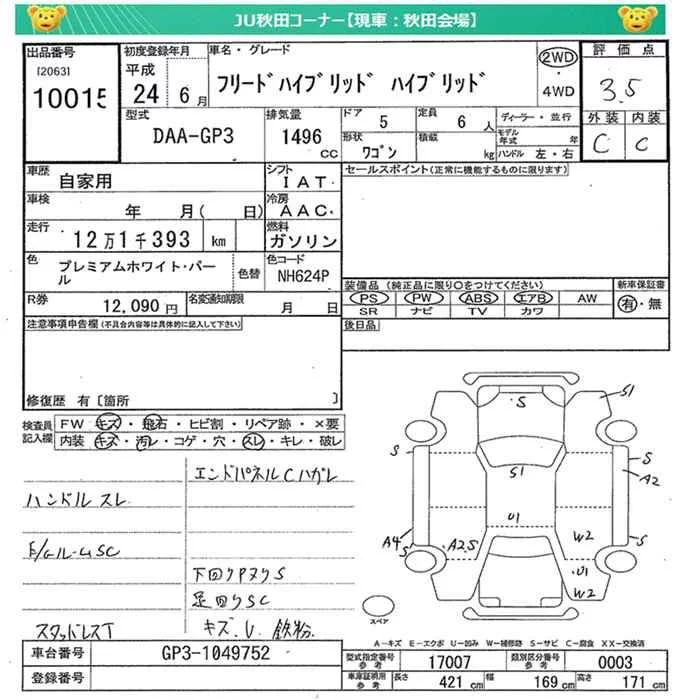 JU秋田コーナー【現車:秋田会場】
出品番号
[2063]
10015
初度登録年月
平成
24 6月
車名・グレード
フリードハイブリッド ハイブリッド
2WD
・
4WD
評価点
3.5
外装 内装
C C
型式
DAA-GP3
排気量
1496
cc
ドア
5
定員
6 人
形状
ワゴン
積載
kg
ディーラー・並行
モデル年式 年
ハンドル 左・右
車歴
自家用
シフト
IAT
車検
年 月( 日)
冷房
AAC
走行
12万1千393 km
燃料
ガソリン
色
プレミアムホワイト・パール
色替
色コード
NH624P
R券
12,090 円
名変通知期限
月 日
セールスポイント(正常に機能するものに限ります)
装備品(純正品に限り○をつけてください)
PS PW ABS エアB AW
SR ナビ TV カワ
新車保証書
有・無
後日品
注意事項申告欄(不具合内容等は具体的に記入して下さい)
修復歴 有〔箇所 〕
検査員記入欄
FW キズ・飛石・ヒビ割・リペア跡・×要
内装 キズ・汚レ・コゲ・穴・スレ・キレ・破レ
エンドパネルCハガレ
ハンドルスレ
下回りPヌリS
足回りSC
スタッドレスT
キズ.U.鉄粉
S
S1
S
S1
S
A2
U1
W2
S
A4
S
A2.S
U1
W2
スペア
A-キズ E-エクボ U-凹み W-補修跡 S-サビ C-腐食 XX-交換済
車台番号
GP3-1049752
登録番号
型式指定番号 参考
17007
類別区分番号 参考
0003
車庫証明用 参考
長さ 421 cm
幅 169 cm
高さ 171 cm